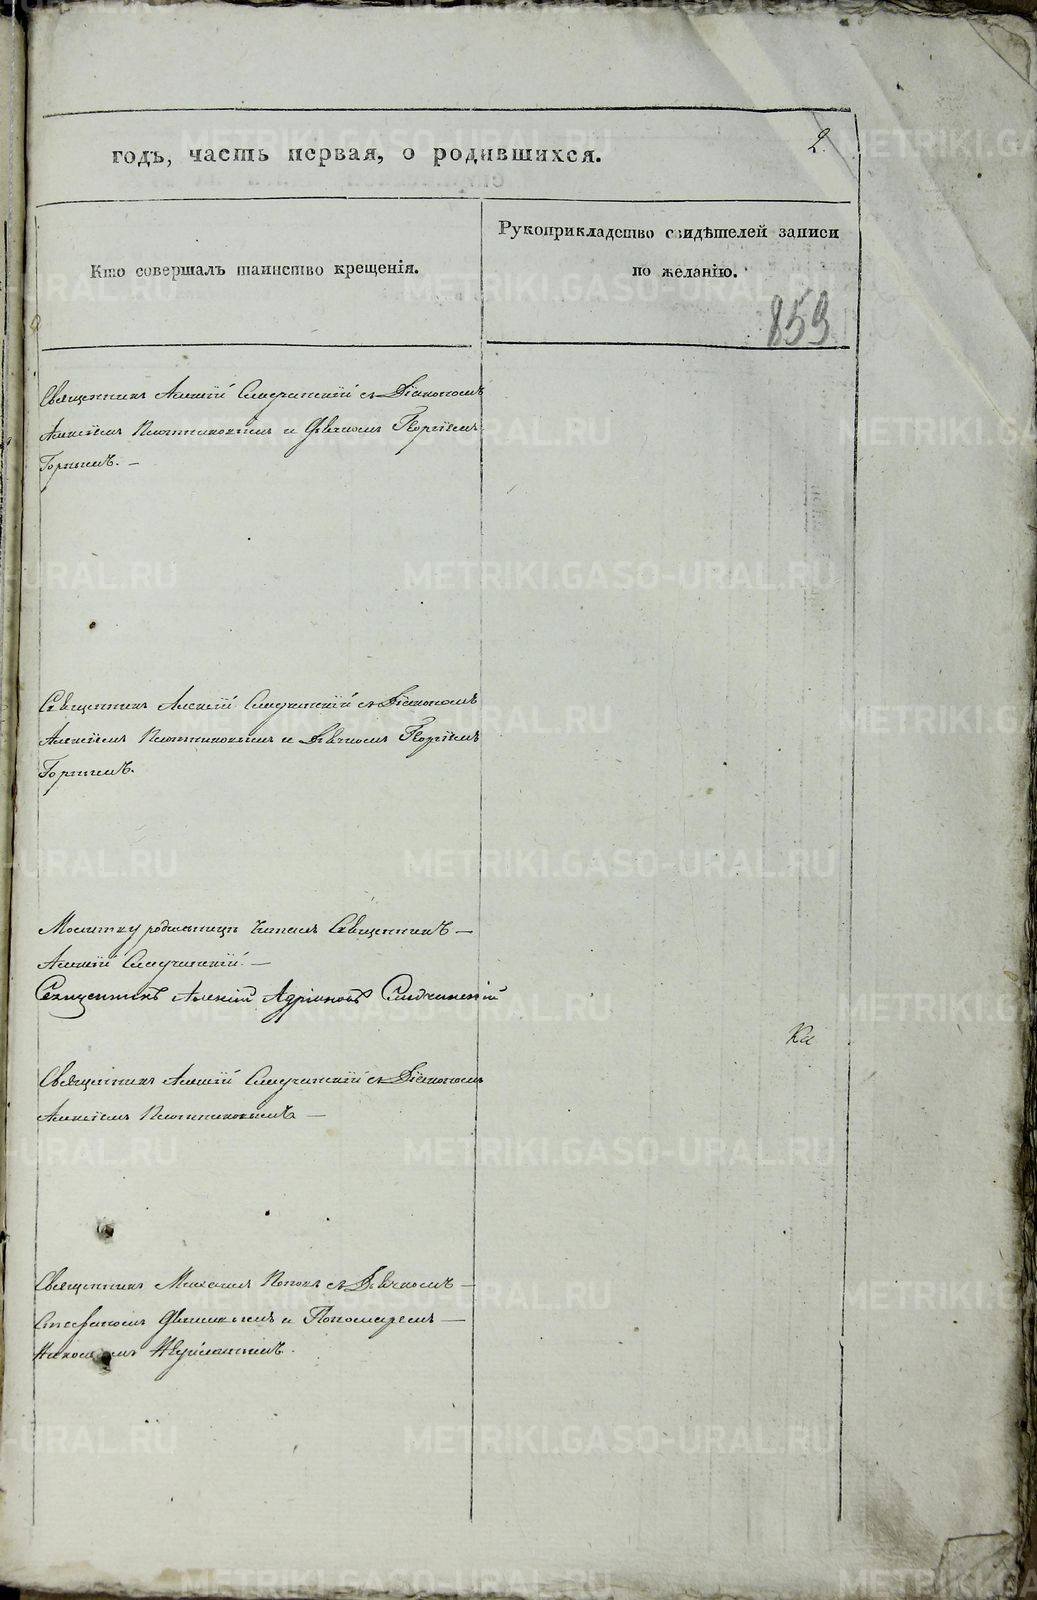 годъ, часть первая, о родившихся.
2.
Кто совершалъ таинство крещенія.
Рукоприкладство свидѣтелей записи
по желанію.
859
Священникъ Алексій Смирнскій съ Діакономъ
Алексіемъ Плотниковымъ и Дьячкомъ Георгіемъ
Горнымъ. —
Священникъ Алексій съ Діакономъ
Алексіемъ Плотниковымъ и Дьячкомъ Георгіемъ
Горнымъ.
Молитву родильницѣ читалъ Священникъ —
Алексій —
Священникъ Алексій Адріановъ
Ка
Священникъ Алексій съ Діакономъ
Алексіемъ Плотниковымъ —
Священникъ Михаилъ Поповъ съ Дьячкомъ —
Стефаномъ и Пономаремъ —
Николаемъ
METRIKI.GASO-URAL.RU